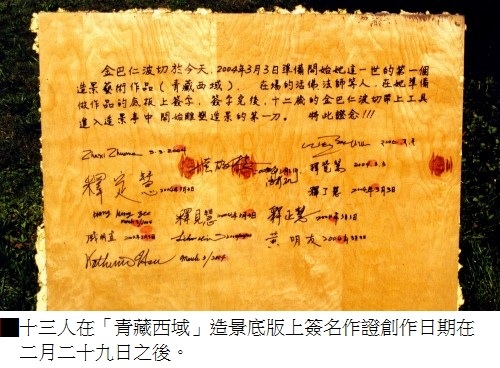 金巴仁波切於今天，2004年3月3日準備開始她這一世的第一個
造景藝術作品(青藏西域)， 在場的活佛法師等人，在她準備
做作品的底板上簽字， 簽字完後，十二歲的金巴仁波切帶上工具
進入造景亭中開始雕塑造景的第一刀。 將此證念!!!
Zhaxi Zhuoma 3.3.2004
釋覺慧 2004.3.3
釋定慧 2004年3月3日
釋了慧 2004年3月3日
釋見慧 2004年3月3日
釋正慧 2004年3月3日
March 3/2004
2004年3月3日
黃明友 2004年3月3日
Katherine Hsu March 3/2004
十三人在「青藏西域」造景底版上簽名作證創作日期在
二月二十九日之後。